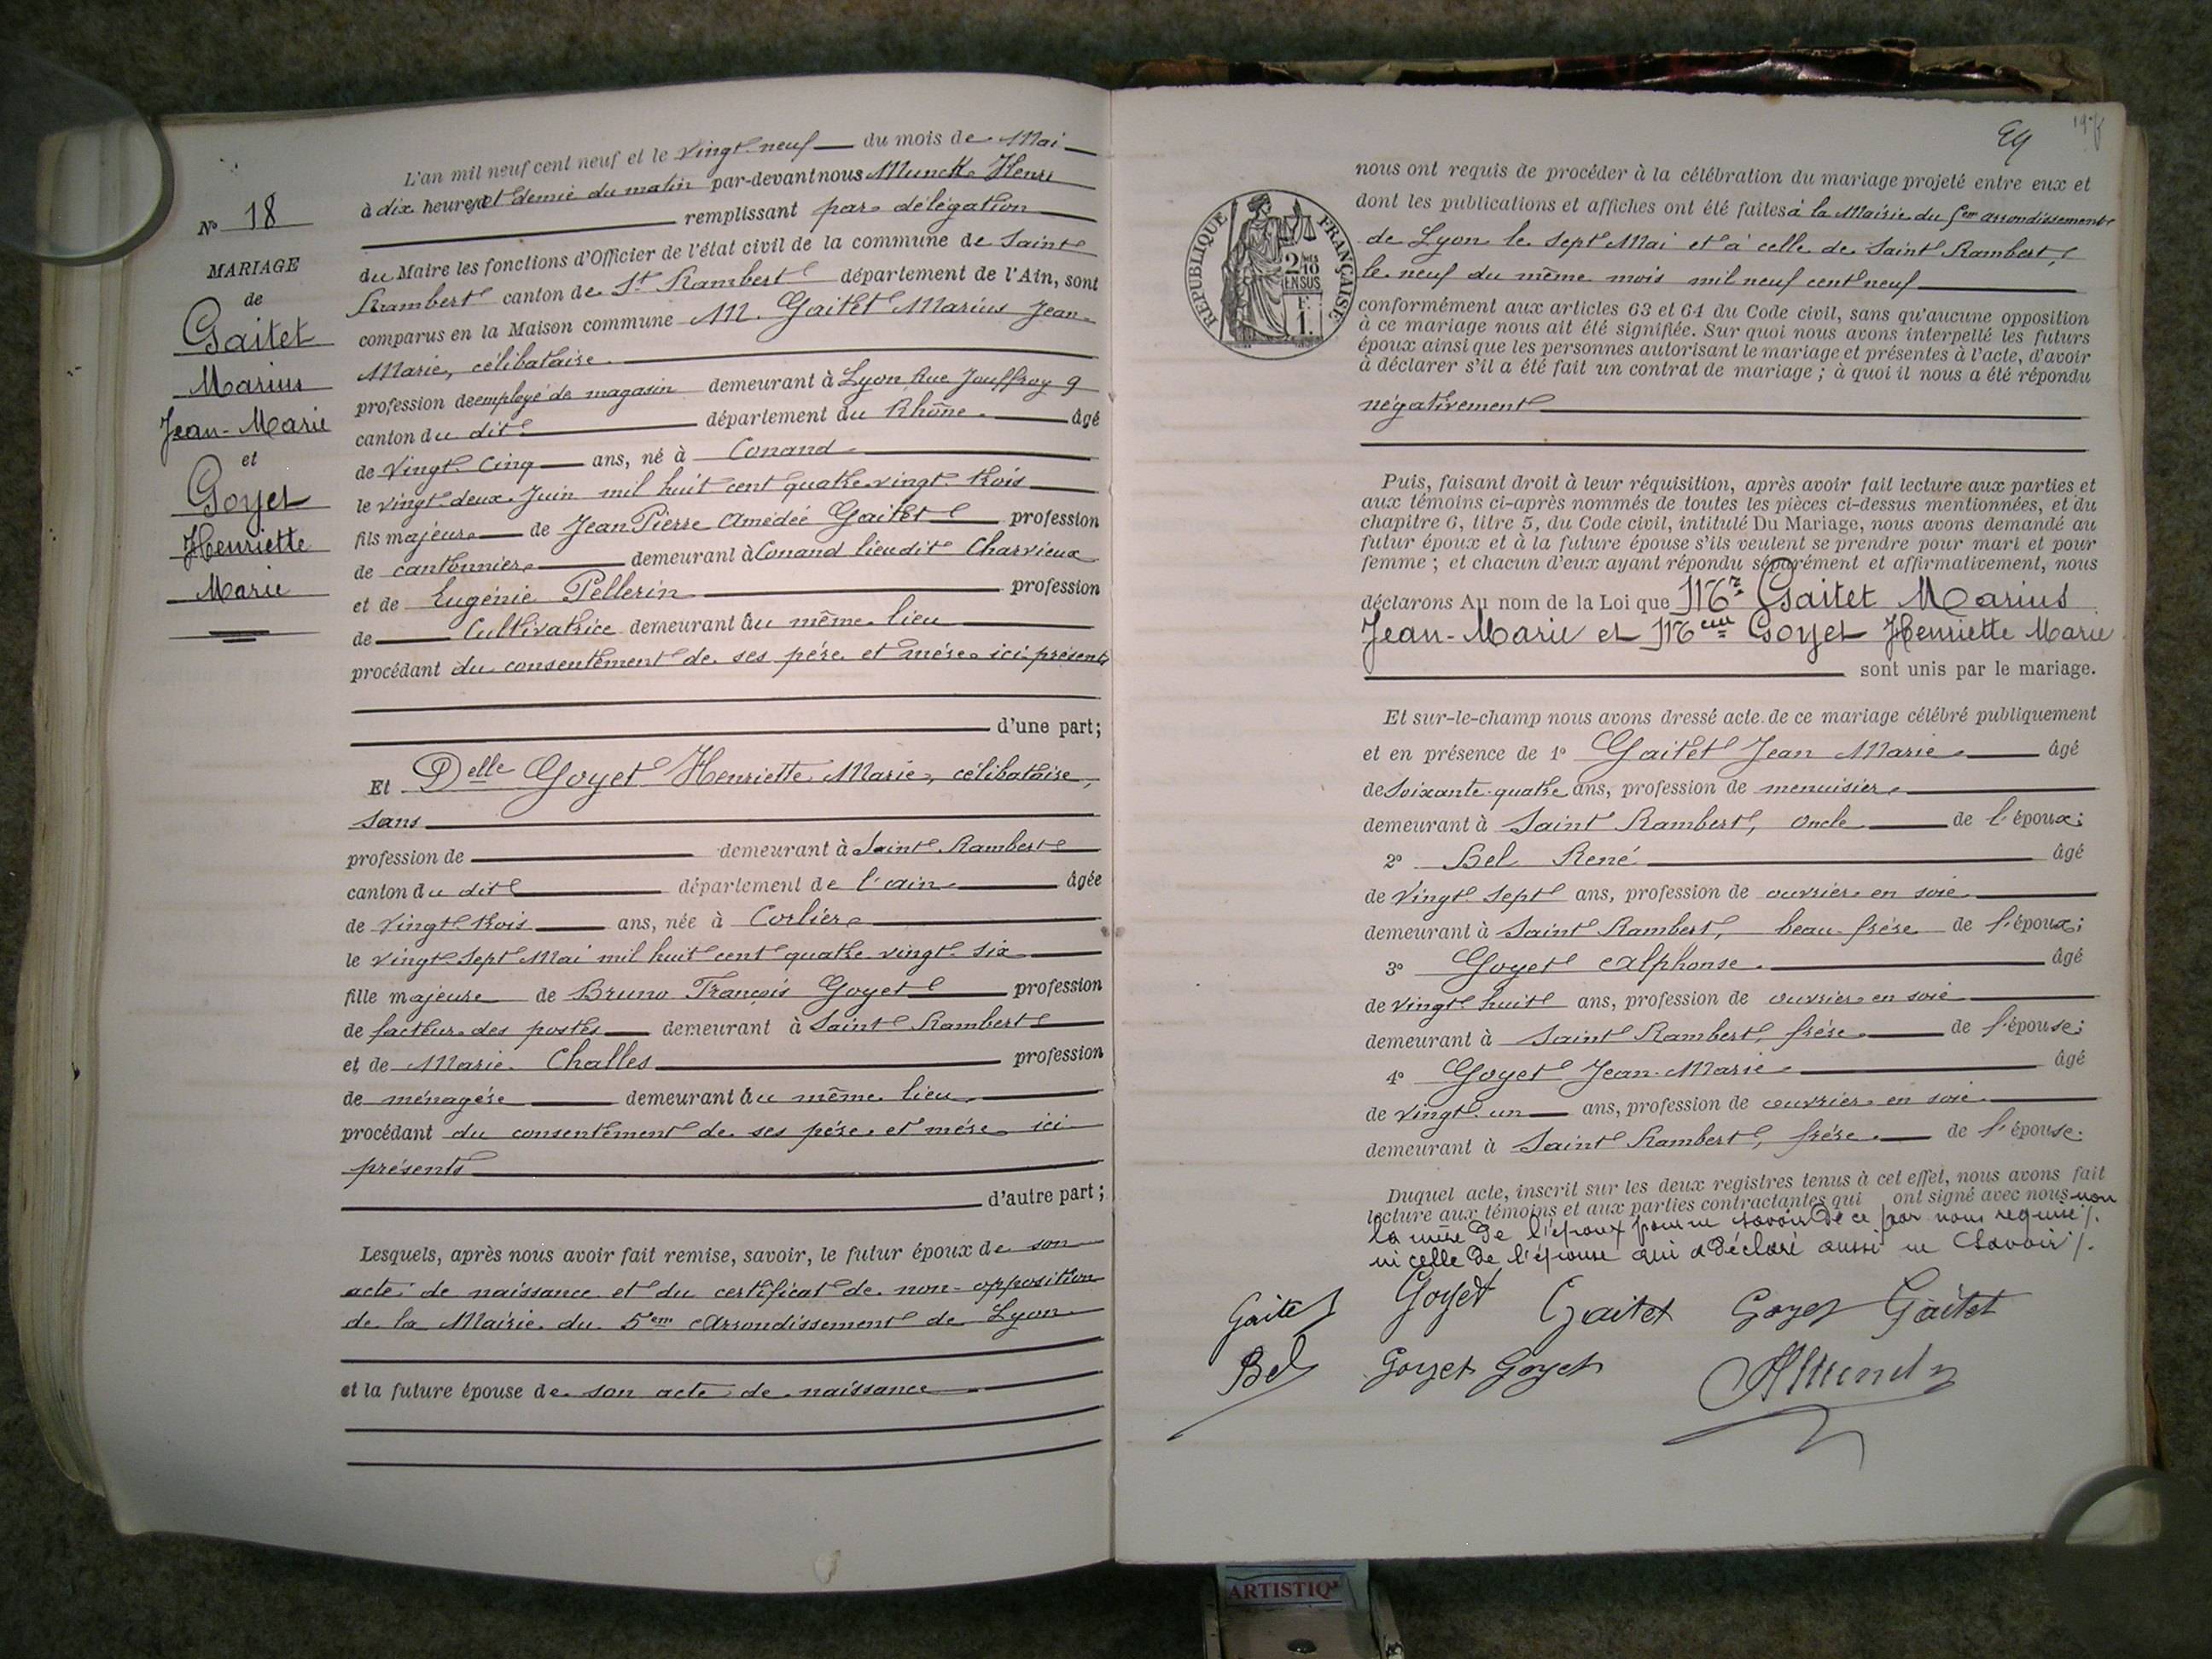 N° 18
MARIAGE
de
Gaitet
Marius
Jean-Marie
et
Goyet
Henriette
Marie
L'an mil neuf cent neuf et le vingt neuf du mois de Mai
à dix heures et demie du matin par-devant nous Munck Henri
remplissant par délégation
du Maire les fonctions d'Officier de l'état civil de la commune de Saint
Rambert canton de St Rambert département de l'Ain, sont
comparus en la Maison commune M. Gaitet Marius Jean
Marie, célibataire
profession de employé de magasin demeurant à Lyon, Rue Jouffroy 9
canton du dit département du Rhône âgé
de vingt cinq ans, né à Conand
le vingt deux Juin mil huit cent quatre vingt trois
fils majeur de Jean Pierre Amédée Gaitet profession
de cantonnier demeurant à Conand lieu dit Charvieux
et de Eugénie Pellerin profession
de Cultivatrice demeurant au même lieu
procédant du consentement de ses père et mère ici présents
d'une part;
Et Delle Goyet Henriette Marie, célibataire,
sans
profession de demeurant à Saint Rambert
canton du dit département de l'ain âgée
de vingt trois ans, née à Corlier
le vingt sept Mai mil huit cent quatre vingt six
fille majeure de Bruno François Goyet profession
de facteur des postes demeurant à Saint Rambert
et de Marie Challes profession
de ménagère demeurant au même lieu
procédant du consentement de ses père et mère ici
présents
d'autre part;
Lesquels, après nous avoir fait remise, savoir, le futur époux de son
acte de naissance et du certificat de non-opposition
de la Mairie du 5em Arrondissement de Lyon
et la future épouse de son acte de naissance
nous ont requis de procéder à la célébration du mariage projeté entre eux et
dont les publications et affiches ont été faites à la Mairie du 5em arrondissement
de Lyon le sept Mai et à celle de Saint Rambert,
le neuf du même mois mil neuf cent neuf
REPUBLIQUE FRANÇAISE
2/10 EN SUS
F. 1.
conformément aux articles 63 et 64 du Code civil, sans qu'aucune opposition
à ce mariage nous ait été signifiée. Sur quoi nous avons interpellé les futurs
époux ainsi que les personnes autorisant le mariage et présentes à l'acte, d'avoir
à déclarer s'il a été fait un contrat de mariage ; à quoi il nous a été répondu
négativement
Puis, faisant droit à leur réquisition, après avoir fait lecture aux parties et
aux témoins ci-après nommés de toutes les pièces ci-dessus mentionnées, et du
chapitre 6, titre 5, du Code civil, intitulé Du Mariage, nous avons demandé au
futur époux et à la future épouse s'ils veulent se prendre pour mari et pour
femme ; et chacun d'eux ayant répondu séparément et affirmativement, nous
déclarons Au nom de la Loi que Mr Gaitet Marius
Jean-Marie et Melle Goyet Henriette Marie
sont unis par le mariage.
Et sur-le-champ nous avons dressé acte de ce mariage célébré publiquement
et en présence de 1° Gaitet Jean Marie âgé
de soixante-quatre ans, profession de menuisier
demeurant à Saint Rambert, oncle de l'époux;
2° Bel René âgé
de vingt sept ans, profession de ouvrier en soie
demeurant à Saint Rambert, beau-frère de l'époux;
3° Goyet Alphonse âgé
de vingt huit ans, profession de ouvrier en soie
demeurant à Saint Rambert, frère de l'épouse;
4° Goyet Jean-Marie âgé
de vingt un ans, profession de ouvrier en soie
demeurant à Saint Rambert, frère de l'épouse.
Duquel acte, inscrit sur les deux registres tenus à cet effet, nous avons fait
lecture aux témoins et aux parties contractantes qui ont signé avec nous non
la mère de l'époux pour ne savoir de ce par nous requise /.
ni celle de l'épouse qui a déclaré aussi ne savoir /.
Gaitet Goyet Gaitet Goyet Gaitet
Bel Goyet Goyet
ARTISTIQ